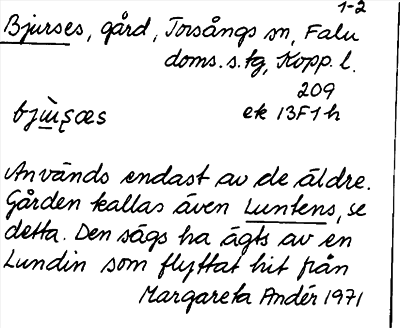 1-2
Bjurses, gård, Torsångs sn, Falu
doms. s. tg, Kopp. l.
209
bjɯ̀ʂæs ek 13F1h
Används endast av de äldre.
Gården kallas även Luntens, se
detta. Den sägs ha ägts av en
Lundin som flyttat hit från
Margareta Andér 1971